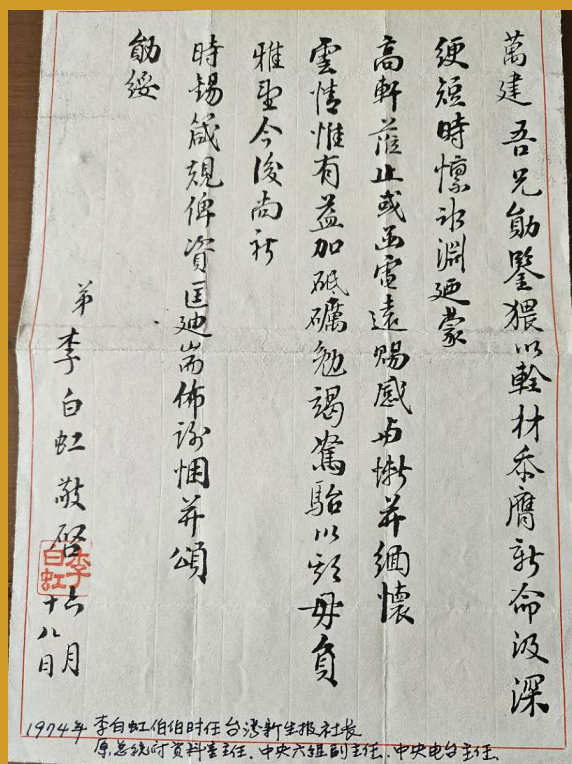 萬建吾兄勛鑒猥以輇材忝膺新命汲深
綆短時懍冰淵迺蒙
高軒蒞止或函電遠賜感與慚并緬懷
雲情惟有益加砥礪勉竭駑駘以期毋負
雅望今後尚祈
時錫箴規俾資匡迪耑佈謝悃并頌
勛綏
弟李白虹敬啓 六月十八日
李白虹
1974年 李白虹伯伯时任台湾新生报社长
原总统府资料室主任、中央六组副主任、中央电台主任.